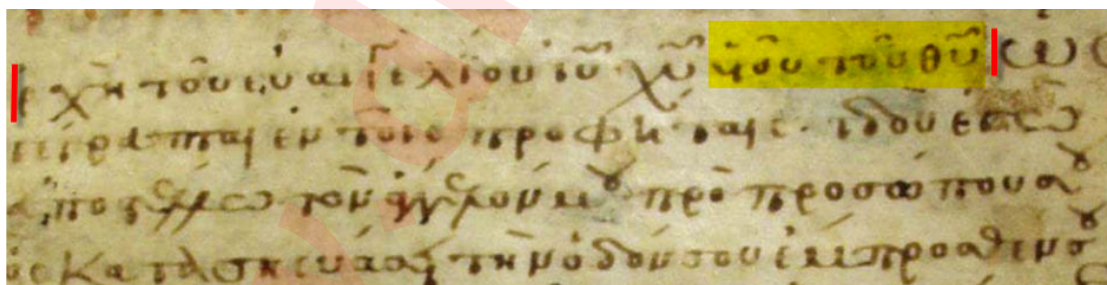 ρχη του ευαγγελιου ιυ χυ υιου του θυ ως
γεγραπται εν τοις προφηταις· ιδου εγω
αποστελλω τον αγγελον μου προ προσωπου σου
ος κατασκευασει την οδον σου εμπροσθεν σου